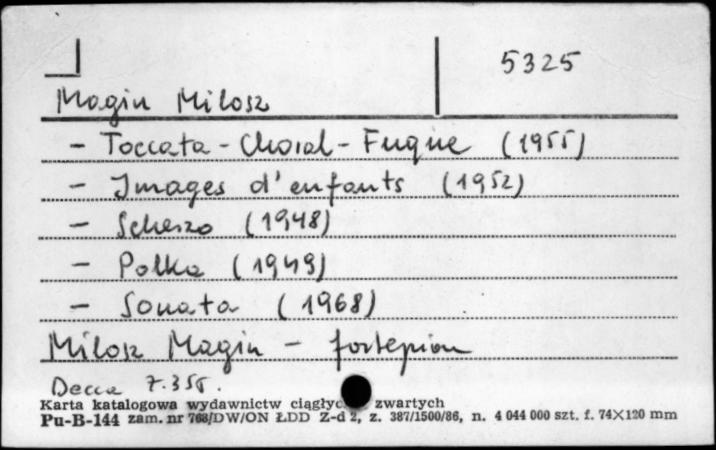 5325
Magin Milosz
- Toccata - Choral - Fugue (1955)
- Images d'enfants (1952)
- Scherzo (1948)
- Polka (1949)
- Sonata (1968)
Milosz Magin - fortepian
Decca 7.355.
Karta katalogowa wydawnictw ciągłyc zwartych
Pu-B-144 zam. nr 768/DW/ON ŁDD Z-d 2, z. 387/1500/86, n. 4 044 000 szt. f. 74X120 mm